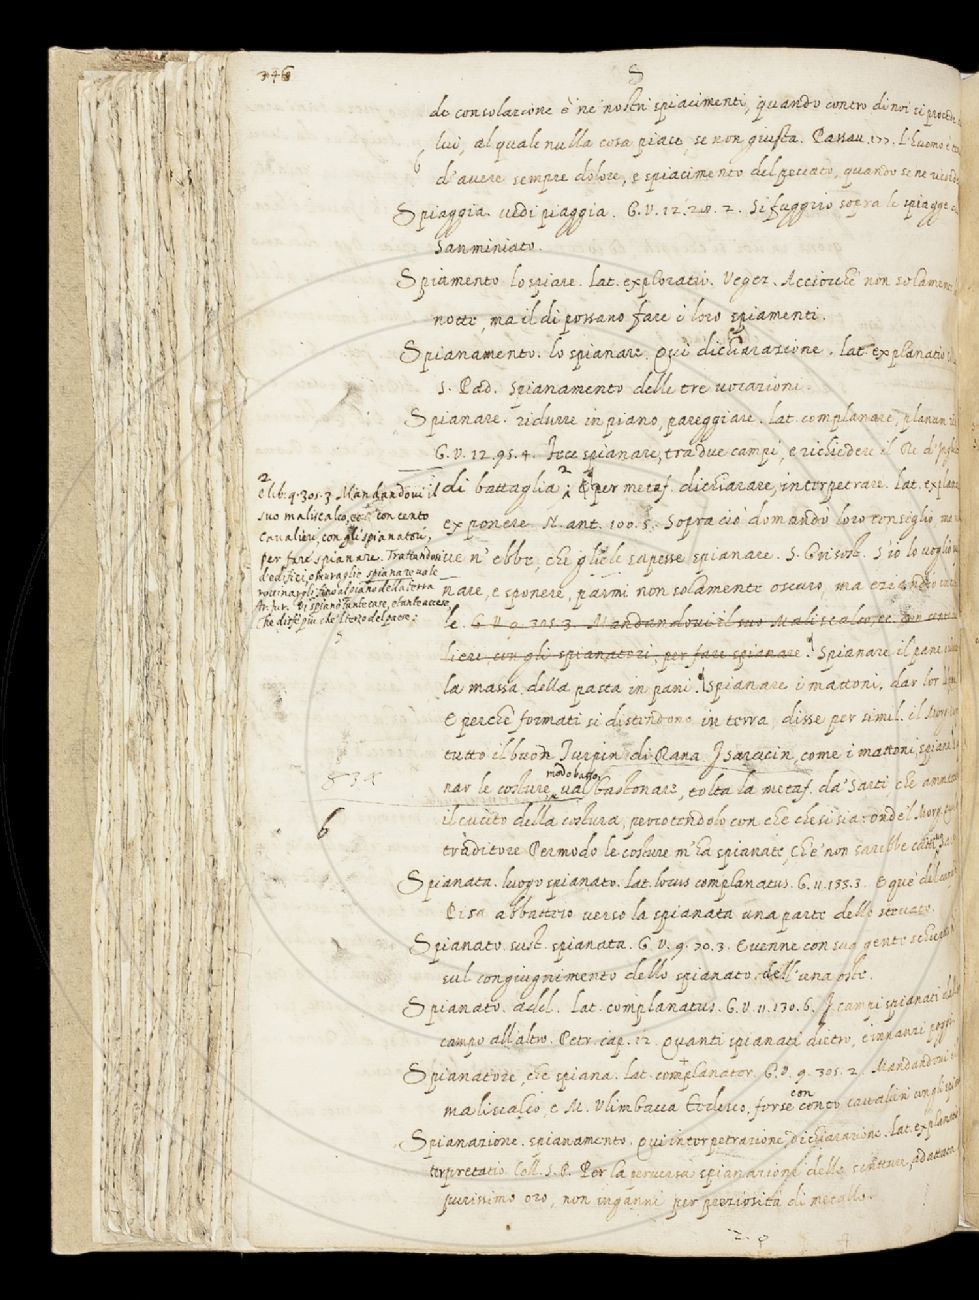 346
S
de consolazione è ne nostri spiacimenti, quando contro di noi si procede
lui, al quale nulla cosa piace, se non giusta. Passav. 177. L'huomo è
d'avere sempre dolore, e spiacimento del peccato, quando se ne ricorda
Spiaggia. vedi piaggia. G. V. 12. 28. 2. Si fuggiro sopra le spiagge
Sanminiato.
Spiamento. lo spiare. lat. exploratio. Vegez. Acciocchè non solamente
notte, ma il dì possano fare i loro spiamenti.
Spianamento. lo spianare. Qui dichiarazione. lat. explanatio
S. Pad. Spianamento delle tre vocazioni.
Spianare. ridurre in piano, pareggiare. lat. complanare, planum
G. V. 12. 95. 4. Fece spianare, tra due campi, e richiedere il Re d'
di battaglia. 2 E per metaf. dichiarare, interpretare. lat.
exponere. N. ant. 100. 5. Sopra ciò domandò loro consiglio,
ve n' ebbe, che gliele sapesse spianare. S. Grisost. S'io lo voglio
nare, e sponere, parmi non solamente oscuro, ma eziandio
le. G. V. 9. 305. 3. Mandandovi il suo Maliscalco, ec. con cento
lieri, con gli spianatori, per fare spianare. Spianare il pane
la massa della pasta in pani. Spianare i mattoni, dar lor
E perchè formati si distendono in terra, disse per simil. il
tutto il buon Turpin di Rana I Saracin, come i mattoni, spiana
nar le costure, modo basso, val bastonare, tolta la metaf. da' Sarti che
il cucito della costura, percotendolo con che che si sia: onde'l Morg.
traditore Permodo le costure m'ha spianate, Che non sarebbe
Spianata. luogo spianato. lat. locus complanatus. G. 11. 133. 3. E que' del campo
Pisa abbattero verso la spianata una parte dello steccato.
Spianato. sust. spianata. G. V. 9. 70. 3. E venne con sua gente
sul congiugnimento dello spianato dell'una oste.
Spianato. add. lat. complanatus. G. V. 11. 130. 6. I campi spianati
campo all'altro. Petr. cap. 12. Quanti spianati dietro, e innanzi poggi
Spianatore, che spiana. lat. complanator. G. V. 9. 305. 2. Mandandovi
maliscalco, e M. Ulimbacca Tedesco, forse con cento cavalieri con gli
Spianazione. spianamento. Qui interpretazione, dichiarazione. lat.
terpretatio. Coll. S. P. Per la perversa spianazione delle scritture, adattata
purissimo oro, non inganni per preziosità di metallo.
2
e lib. 9. 305. 3. Mandandovi il
suo maliscalco, ec. con cento
Cavalieri, con gli spianatori,
per fare spianare. Trattandosi
d'edifici, o muraglie spianare vale
rovinargli sino al piano della terra
spianò tante case, e tante accese
Che disse più che'l terzo del paese:
834
6